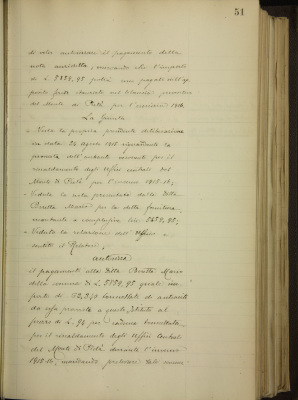 51
di voler autorizzare il pagamento della
nota anzidetta, avvertendo che l'importo
di L. 5159,95 potrà venir pagato coll'ap
posito fondo stanziato nel bilancio preventivo
del Monte di Pietà per l'esercizio 1916,
La Giunta
- Vista la propria precedente deliberazione
in data 26 Agosto 1915 riguardante la
provvista dell'antracite occorrente per il
riscaldamento degli Uffici centrali del
Monte di Pietà per l'inverno 1915-16;
- Veduta la nota presentata dalla Ditta
Beretta Mario per la detta fornitura
ammontante a complessive lire 5159,95;
- Veduta la relazione dell'Ufficio e
sentito il Relatore;
autorizza
il pagamento alla Ditta Beretta Mario
della somma di L. 5159,95 quale im
porto di 52,350 tonnellate di antracite
da essa provvista a questo Istituto al
prezzo di L. 94 per cadauna tonnellata,
per il riscaldamento degli Uffici Centrali
del Monte di Pietà durante l'inverno
1915-16, mandando prelevarsi tale somma